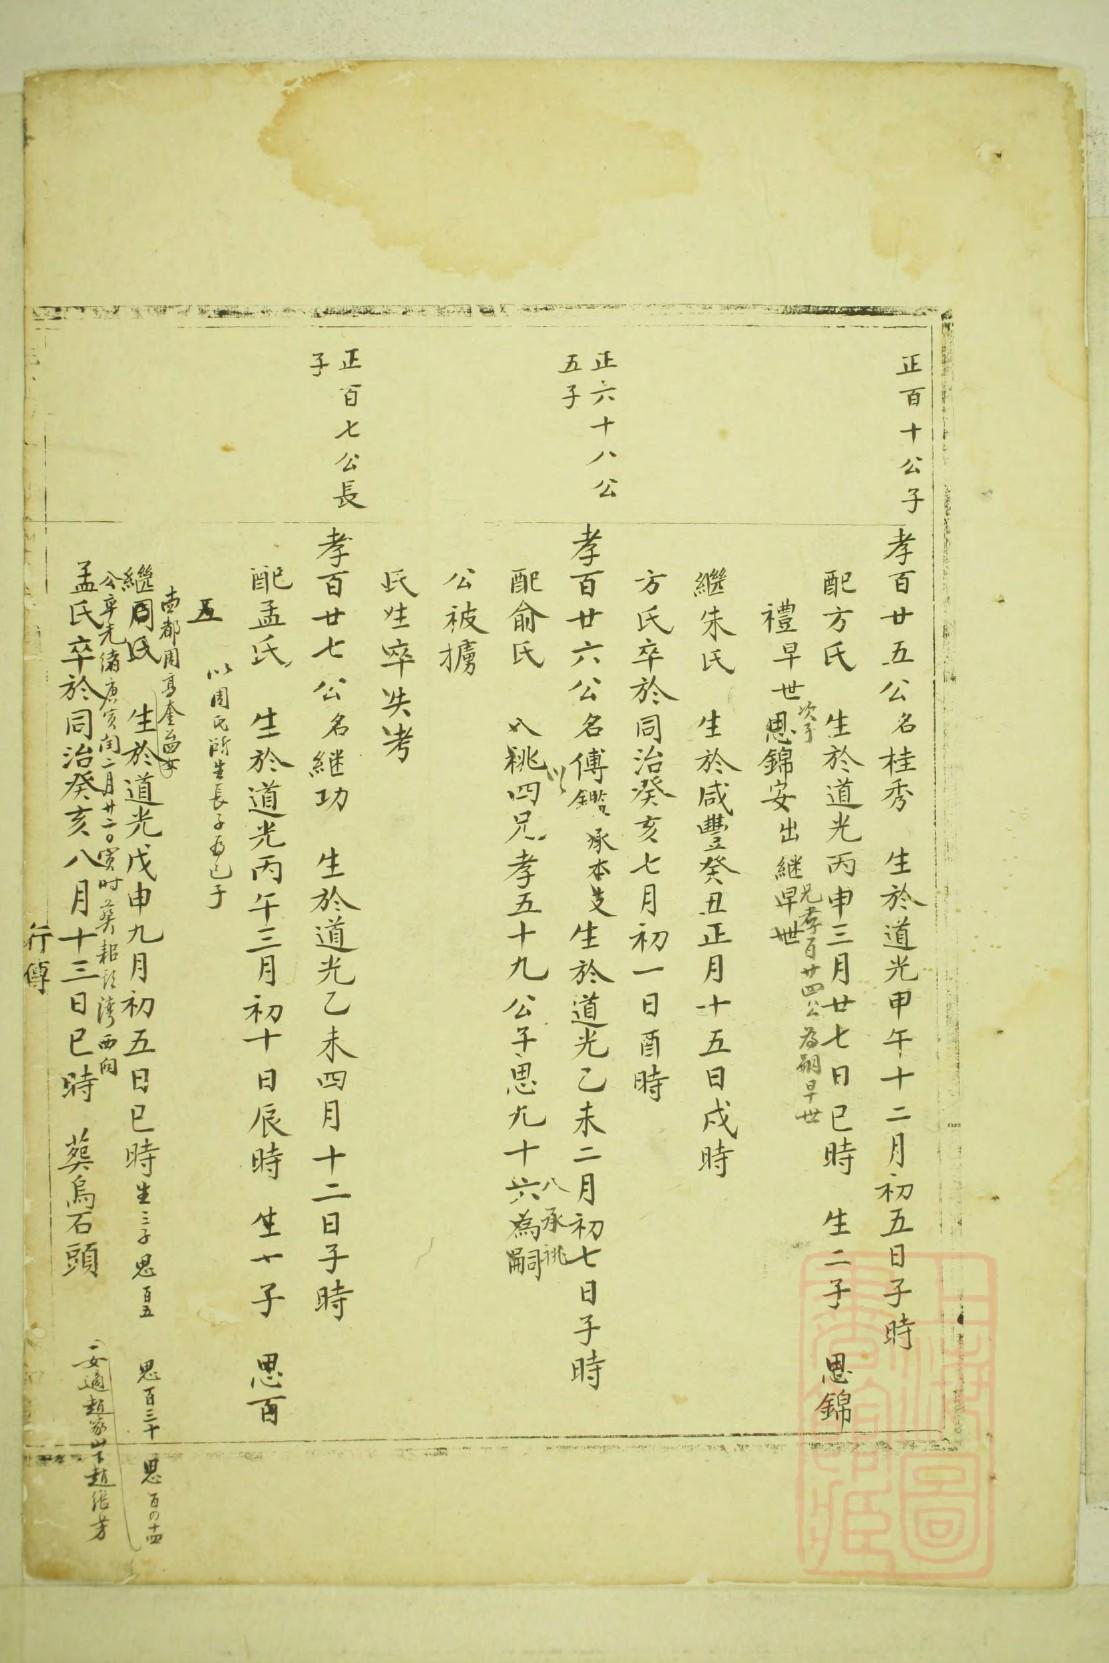 正百十公子
孝百廿五公名桂秀　生於道光甲午十二月初五日子時
配方氏　生於道光丙申三月廿七日巳時　生二子　思錦
次子
兄孝百廿四公為嗣早世
禮早世思錦安出継早世
継朱氏　生於咸豐癸丑正月十五日戌時
方氏卒於同治癸亥七月初一日酉時
正六十八公
五子
孝百廿六公名傅鑑承本支生於道光乙未二月初七日子時
以
八承祧
配俞氏　祧四兄孝五十九公子思九十六為嗣
公被擄
氏生卒失考
正百七公長
子
孝百廿七公名継功　生於道光乙未四月十二日子時
配孟氏　生於道光丙午三月初十日辰時　生一子　思百
以周氏所生長子為己子
五
南都周高奎公女
繼周氏　生於道光戊申九月初五日巳時生三子思百五　思百三十　思百四
公卒光緒庚寅閏二月廿二日寅时葬西向
孟氏卒於同治癸亥八月十三日巳時　葬烏石頭
一女適趙家趙芳
行傳
上海圖書館藏